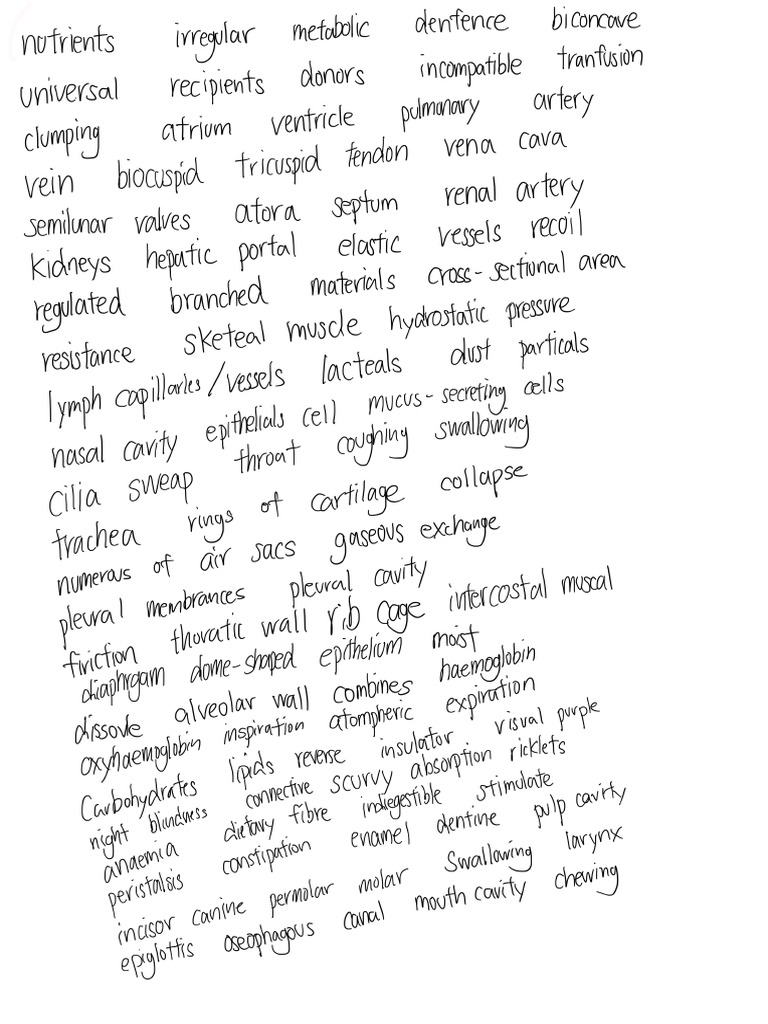 nutrients irregular metabolic denfence biconcave
universal recipients donors incompatible tranfusion
clumping atrium ventricle pulmonary artery
vein biocuspid tricuspid tendon vena cava
semilunar valves atora septum renal artery
kidneys hepatic portal elastic vessels recoil
regulated branched materials cross-sectional area
resistance sketeal muscle hydrostatic pressure
lymph capillaries/vessels lacteals dust particals
nasal cavity epithelials cell mucus-secreting cells
cilia sweap throat coughing swallowing
trachea rings of cartilage collapse
numerous of air sacs gaseous exchange
pleural membrances pleural cavity
firiction thoratic wall rib cage intercostal muscal
diaphrgam dome-shaped epithelium moist
dissovle alveolar wall combines haemoglobin
oxyhaemoglobin inspiration atompheric expiration
Carbohydrates lipids reverse insulator visual purple
night blindness connective scurvy absorption ricklets
anaemia dietary fibre indiegestible stimulate
peristalsis constipation enamel dentine pulp cavirty
incisor canine permolar molar Swallowing larynx
epiglottis oseophagous canal mouth cavity chewing